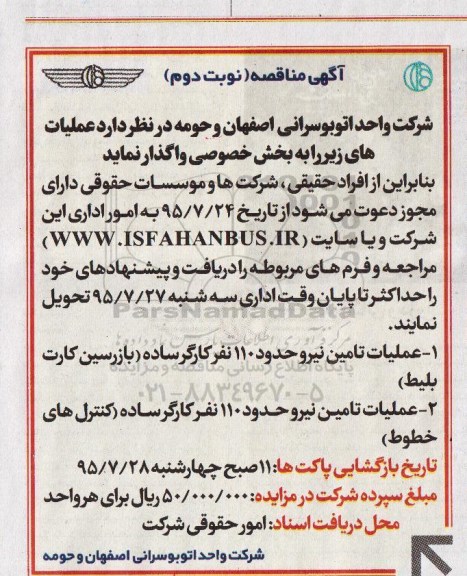 آگهی مناقصه (نوبت دوم)
شرکت واحد اتوبوسرانی اصفهان و حومه در نظر دارد عملیات
های زیر را به بخش خصوصی واگذار نماید
بنابراین از افراد حقیقی، شرکت ها و موسسات حقوقی دارای
مجوز دعوت می شود از تاریخ ۹۵/۷/۲۴ به امور اداری این
شرکت و یا سایت (WWW.ISFAHANBUS.IR)
مراجعه و فرم های مربوطه را دریافت و پیشنهادهای خود
را حداکثر تا پایان وقت اداری سه شنبه ۹۵/۷/۲۷ تحویل
نمایند.
ParsNamadData
پایگاه اطلاع رسانی مناقصه و مزایده
۰۲۱-۸۸۳۴۹۶۷۰-۵
۱-عملیات تامین نیرو حدود ۱۱۰ نفر کارگر ساده (بازرسین کارت
بلیط)
۲-عملیات تامین نیرو حدود ۱۱۰ نفر کارگر ساده (کنترل های
خطوط)
تاریخ بازگشایی پاکت ها: ۱۱ صبح چهارشنبه ۹۵/۷/۲۸
مبلغ سپرده شرکت در مزایده: ۵۰/۰۰۰/۰۰۰ ریال برای هر واحد
محل دریافت اسناد: امور حقوقی شرکت
شرکت واحد اتوبوسرانی اصفهان و حومه